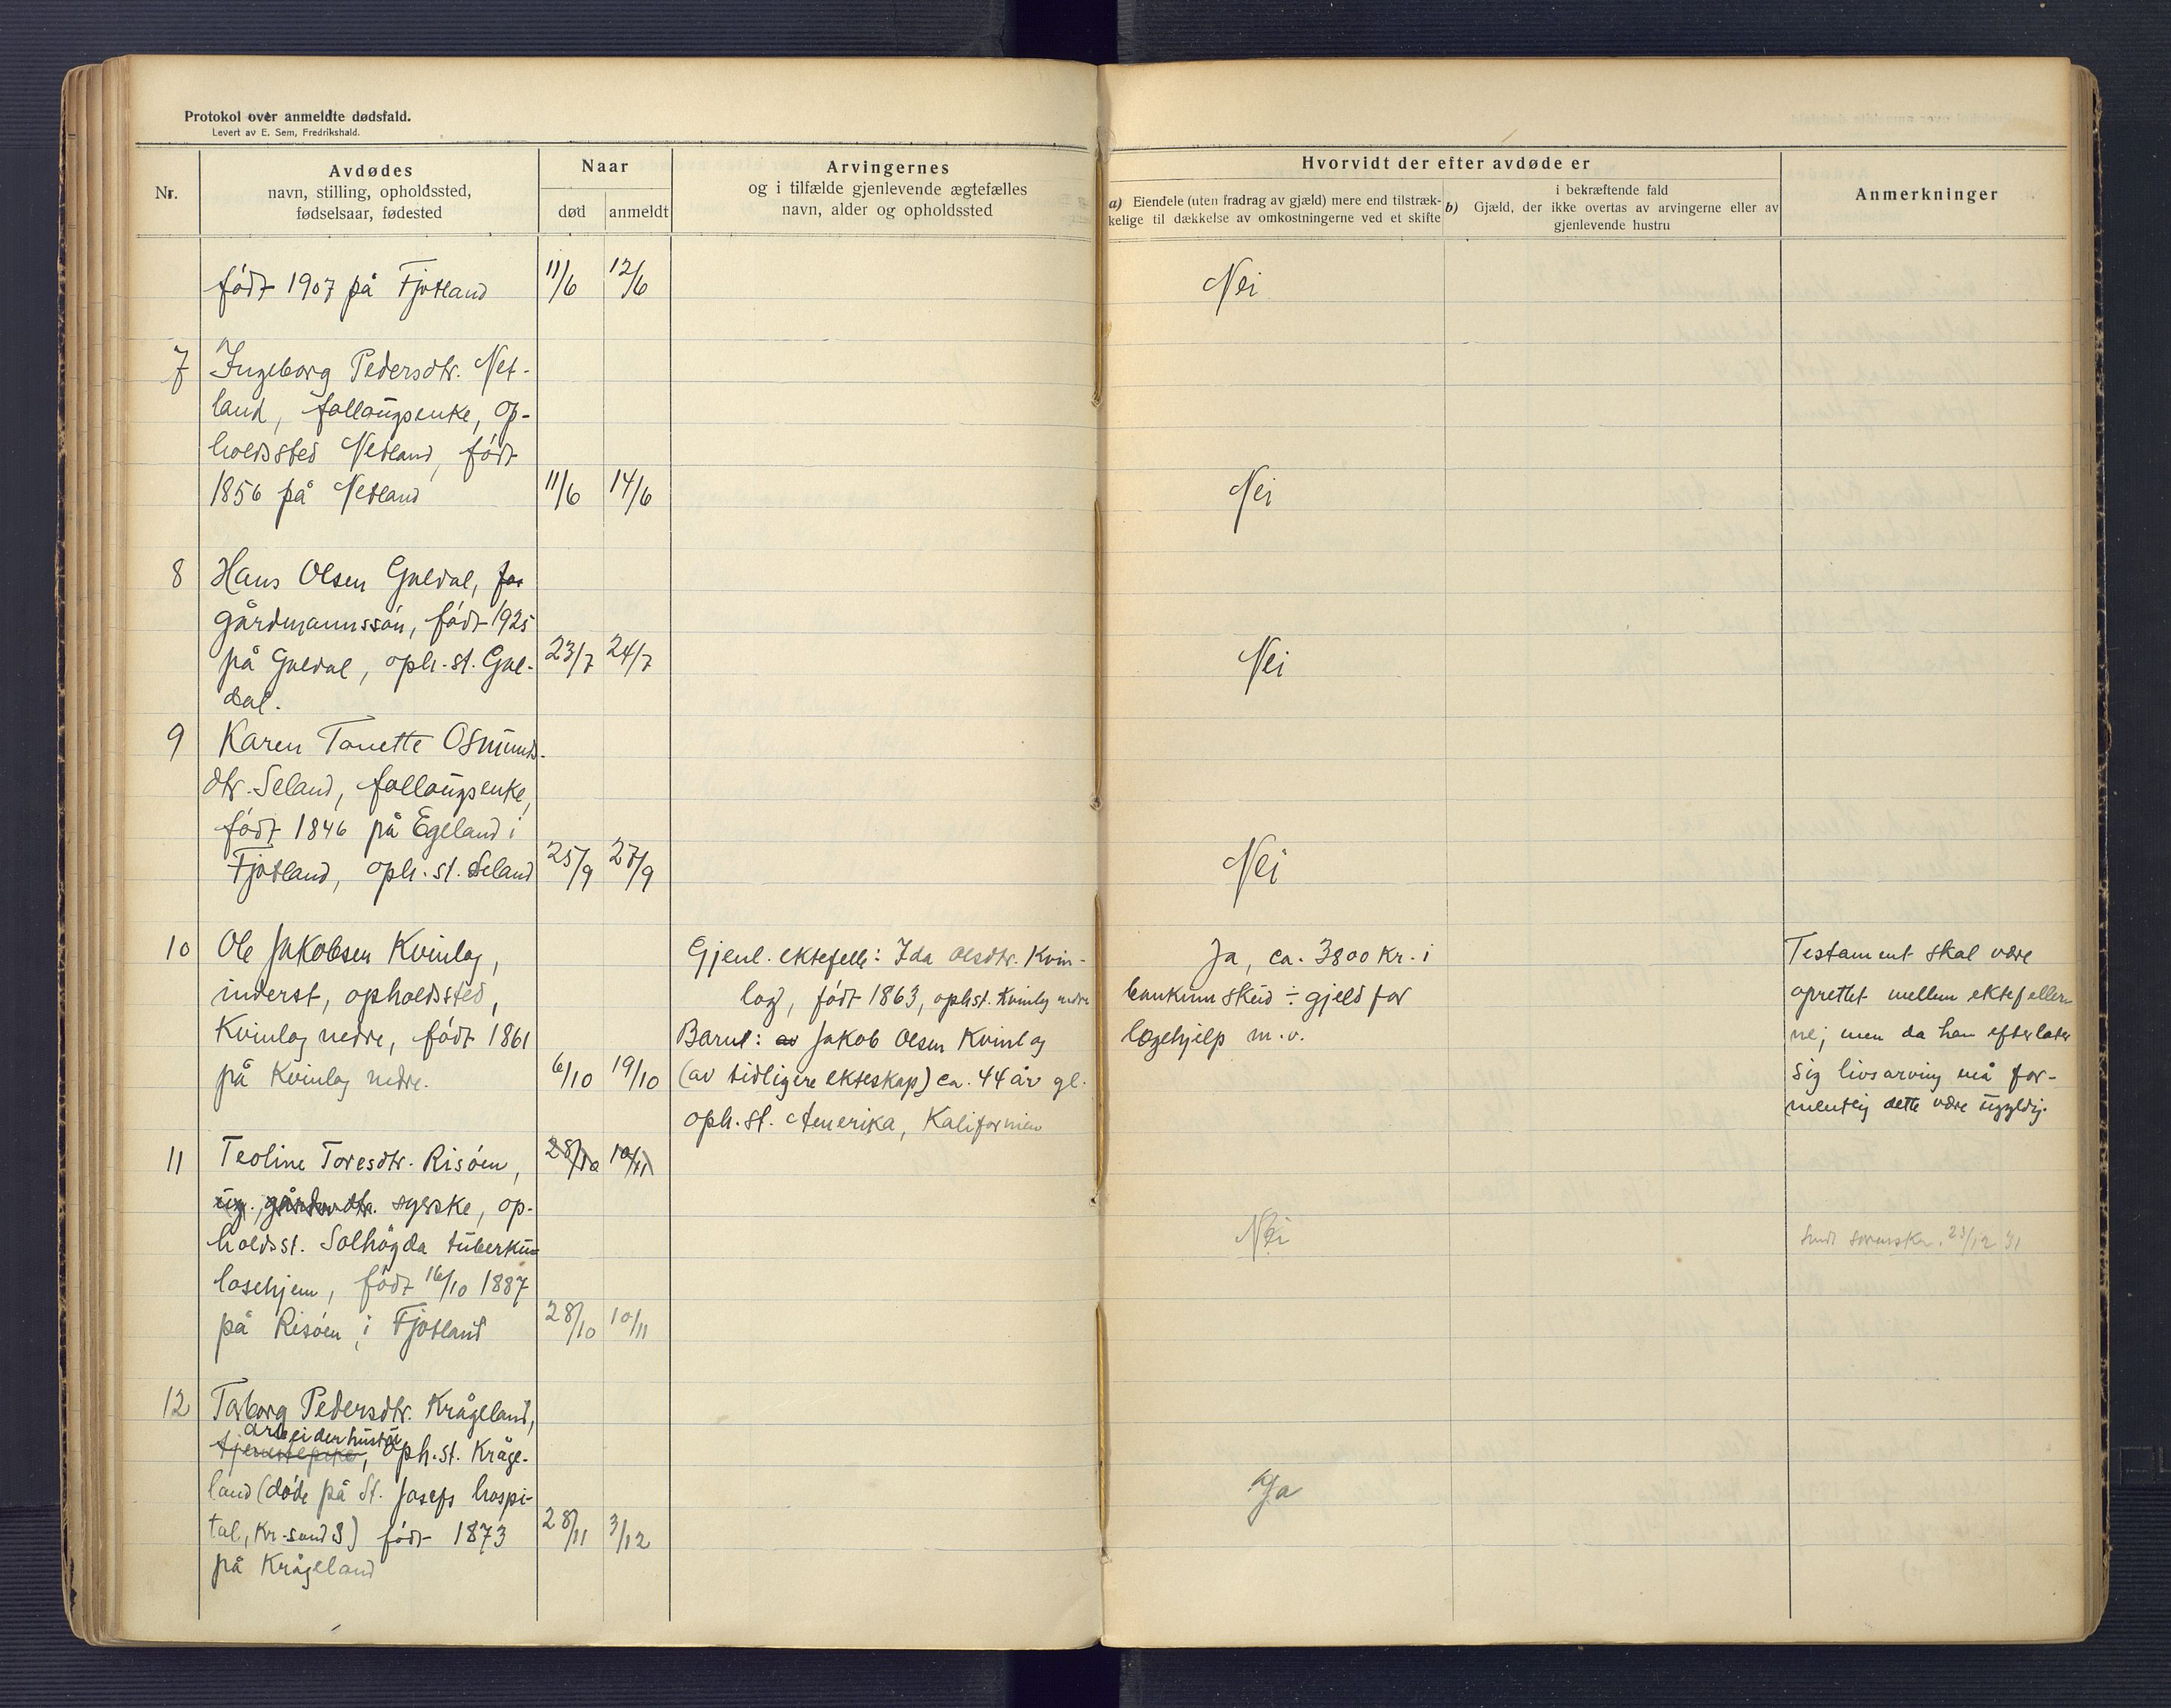 Protokol over anmeldte dødsfald.
Levert av E. Sem, Fredrikshald.
Nr.
Avdødes
navn, stilling, opholdssted,
fødselsaar, fødested
Naar
død
anmeldt
Arvingernes
og i tilfælde gjenlevende ægtefælles
navn, alder og opholdssted
Hvorvidt der efter avdøde er
a) Eiendele (uten fradrag av gjæld) mere end tilstræk-
kelige til dækkelse av omkostningerne ved et skifte
i bekræftende fald
b) Gjæld, der ikke overtas av arvingerne eller av
gjenlevende hustru
Anmerkninger
født 1907 på Fjotland 11/6 12/6 Nei
7 Ingeborg Pedersdtr. Net-
land, fallougsenke, op-
holdssted Netland, født
1856 på Netland 11/6 14/6 Nei
8 Hans Olsen Guldal, for
gårdmannssøn, født 1925
på Guldal, oph.st. Gul- 23/7 24/7 Nei
dal.
9 Karen Tonette Osmunds-
dtr. Seland, fallougsenke,
født 1846 på Egeland i
Fjotland, oph.st. Seland 25/9 27/9 Nei
10 Ole Jakobsen Kvinlog,
inderst, opholdssted,
Kvinlog nedre, født 1861
på Kvinlog nedre. 6/10 19/10
Gjenl. ektefelle: Ida Olsdtr. Kvin-
log, født 1863, ophst. Kvinlog nedre
Barn: av Jakob Olsen Kvinlog
(av tidligere ekteskap) ca. 44 år gl.
oph.st. Amerika, Kalifornien
Ja, ca. 3800 kr. i
bankinnskud ÷ gjeld for
lægehjelp m.v.
Testament skal være
oprettet mellem ektefeller-
ne; men da han efterlater
sig livsarving må for-
mentlig dette være ugyldig.
11 Teoline Toresdtr. Risøen, 28/10 10/11
ug. gårdmdtr. syerske, op-
holdsst. Solhøgda tuberku-
losehjem, født 16/10 1887
på Risøen i Fjotland 28/10 10/11
Nei
Sendt 23/12 31
12 Torborg Pedersdtr. Krågeland,
arbeiderhustru
tjenestepike, oph.st. Kråge-
land (døde på St. Josefs hospi-
tal, Kr.sand S) født 1873 28/11 3/12
på Krågeland
Ja